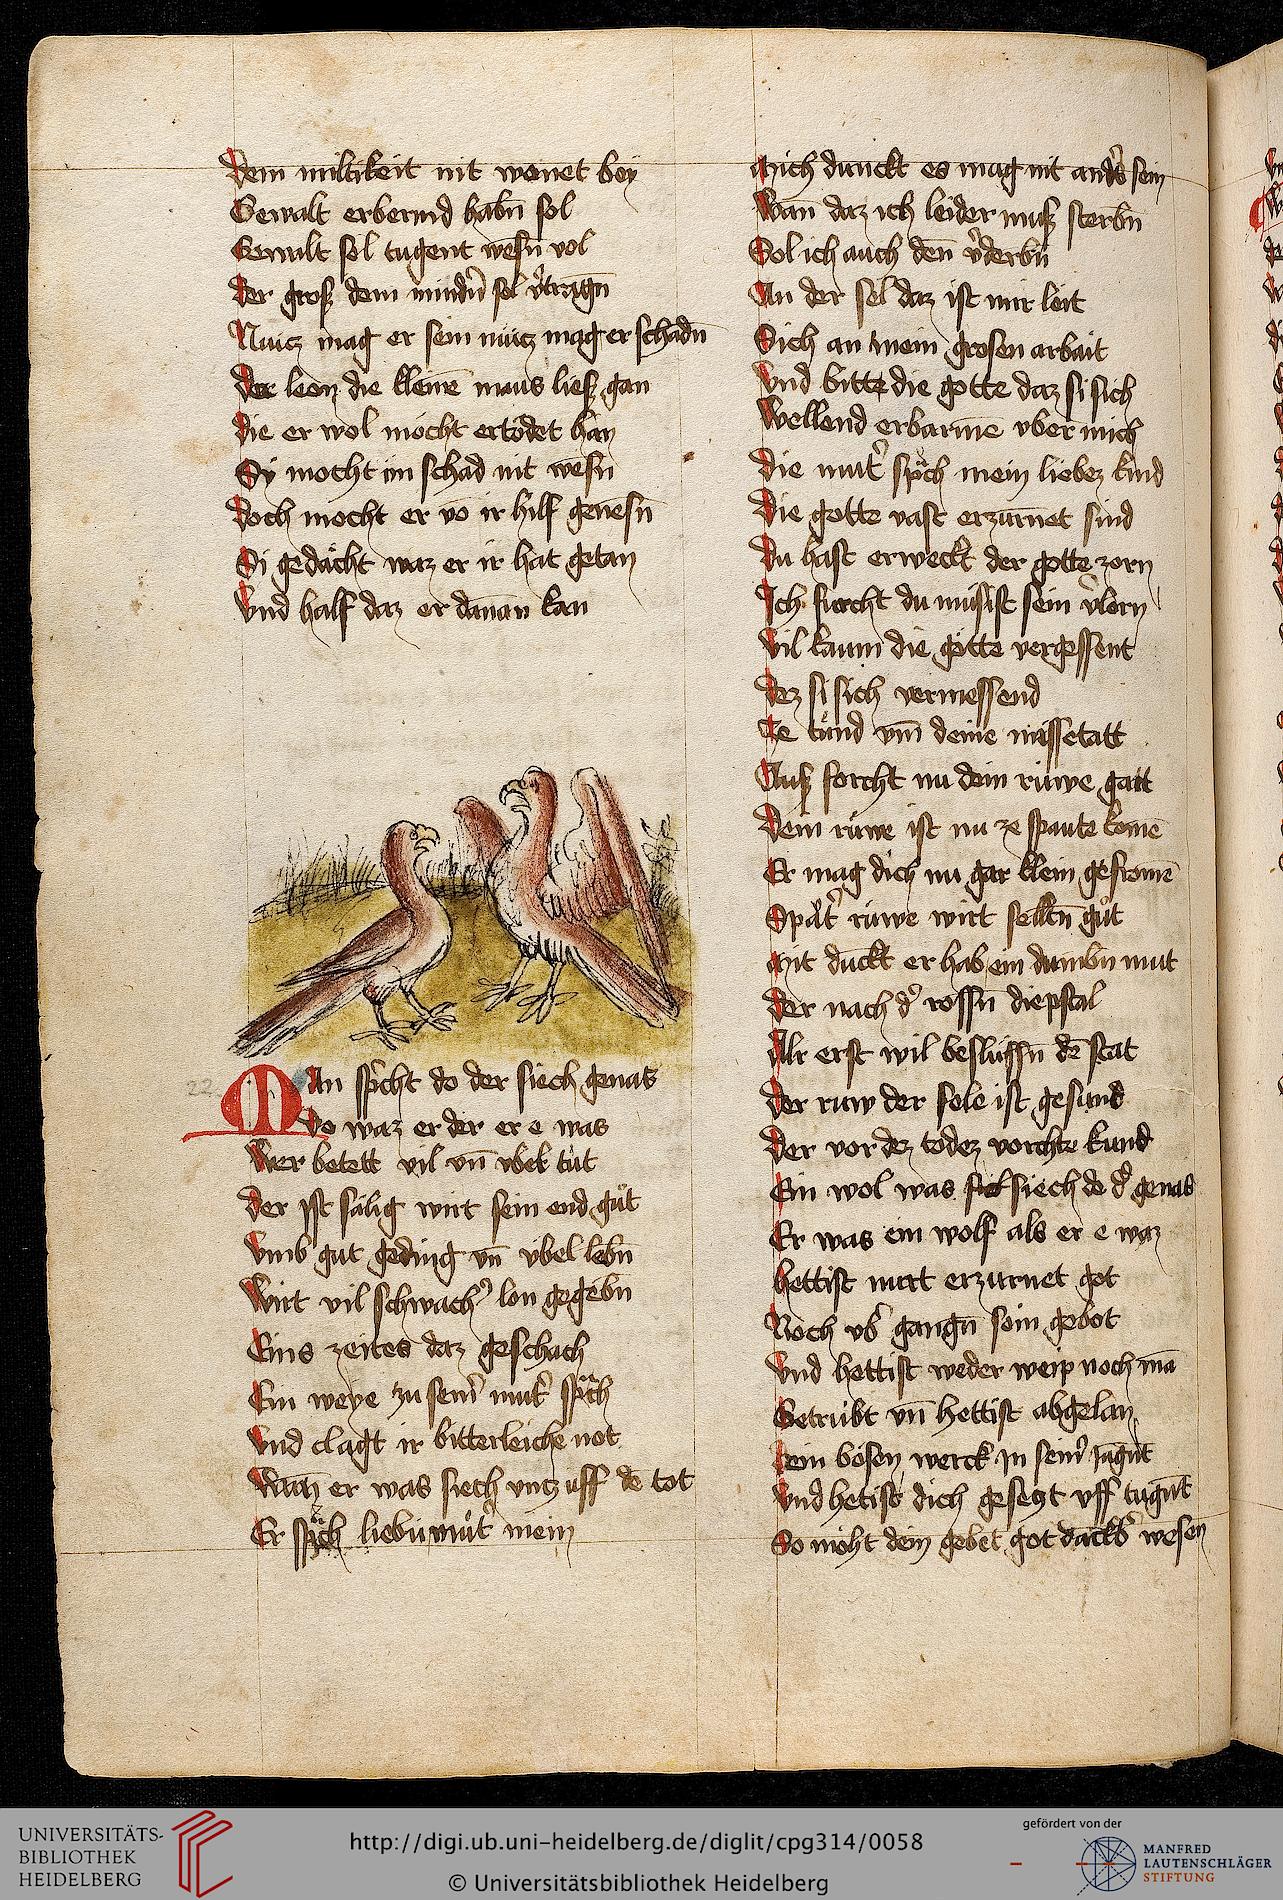 Dem miltikeit nit wonet bey
Gewalt erbermd habn̄ sol
Gewalt sol tugent wesn̄ vol
Der grosz dem mindn̄ sol v̾tragn̄
Nucz mag er sein nücz mag er schadn
Der leon die klein̄e maus liesz gan
Die er wol mocht ertödet han
Sy mocht im schad nit wesn̄
Doch mocht er vō ir hilf genesn̄
Si gedächt waz er ir hat getan
Vnd half daz er dānan kan
22
MAn sp̾icht do der siech genas
Do waz er der er e was
Wer betett vil vn̄ vbel tůt
Der ist sälig wirt sein end gůt
Vmb gut geding vn̄ vbel lebn̄
Wirt vil schwach̾ lon gegebn̄
Eins zeites daz geschach
Ein weye zu sein̾ mut̾ sp̾ach
Vnd clagt ir bitterleiche not
Wann er was siech vntz uff dē tot
Er sp̾ach liebū mut̾ mein
Mich dunckt es mag nit and̾s sein
Wan̄ daz ich leider musz sterbn̄
Sol ich auch den̄ v̾derbn̄
An der sel daz ist mir leit
Sich an mein grosen arbait
Vnd bitte die gotte daz si sich
Wellend erbarmē vber mich
Die mut̾ sp̾ach mein liebez kind
Die gotte vast erzürnet sind
Du hast erweckt der gotte zorn
Ich furcht du müsist sein v̾lorn
Vil kaum die götte vergessent
Dez si sich vermessend
Ze tünd vm̄ deine missetatt
Ausz forcht nu dein rüwe gatt
Dein rüwe ist nu ze spaute komē
Er mag dich nu gar klein gefromē
Spät̾ rüwe wirt seltn̄ gůt
Mit dūckt er hab ein dumbn̄ mut
Der nach d̾ rossn̄ diepstal
Alr erst wil beslüssn̄ dē stat
Der ruw der sele ist gesund
Der vor dez todez vorchte kund
Ein wol was siech do d̾ genas
Er was ein wolf als er e waz
Hettist nitt erzurnet got
Noch vb̾ gangn̄ sein gebot
Vnd hettist weder weip noch mā
Betrübt vn̄ hettist abgelan
Dein bösen werck in sein̾ jagūt
Vnd hetist dich gesetzt vff tugūt
So möht dein gebet got danckb̾ wesen
UNIVERSITÄTS-
BIBLIOTHEK
HEIDELBERG
http://digi.ub.uni-heidelberg.de/diglit/cpg314/0058
© Universitätsbibliothek Heidelberg
gefördert von der
MANFRED
LAUTENSCHLÄGER
STIFTUNG